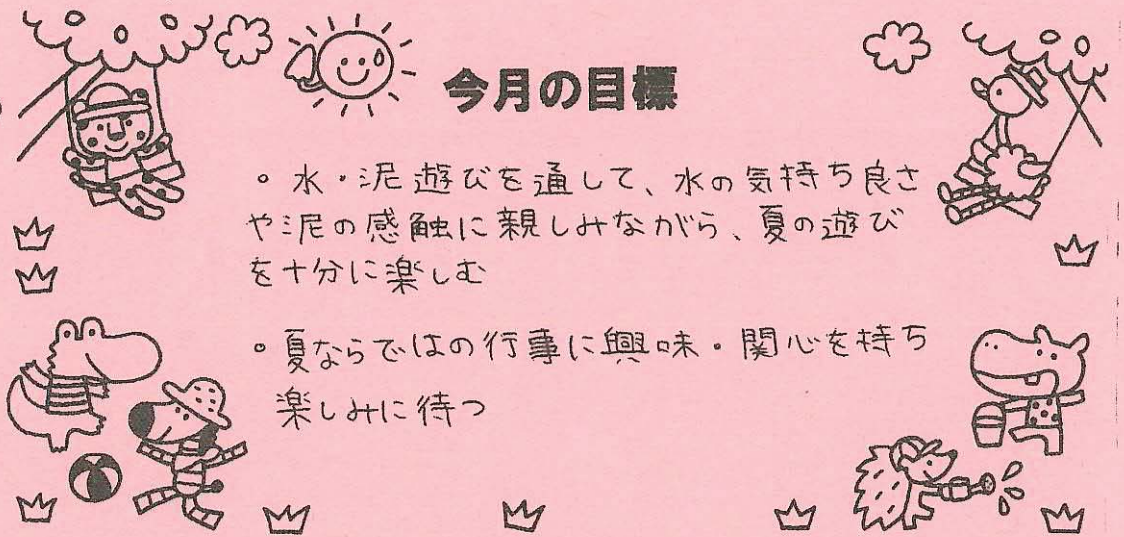 今月の目標
。水・泥遊びを通して、水の気持ち良さ
や泥の感触に親しみながら、夏の遊び
を十分に楽しむ
。夏ならではの行事に興味・関心を持ち
楽しみに待つ